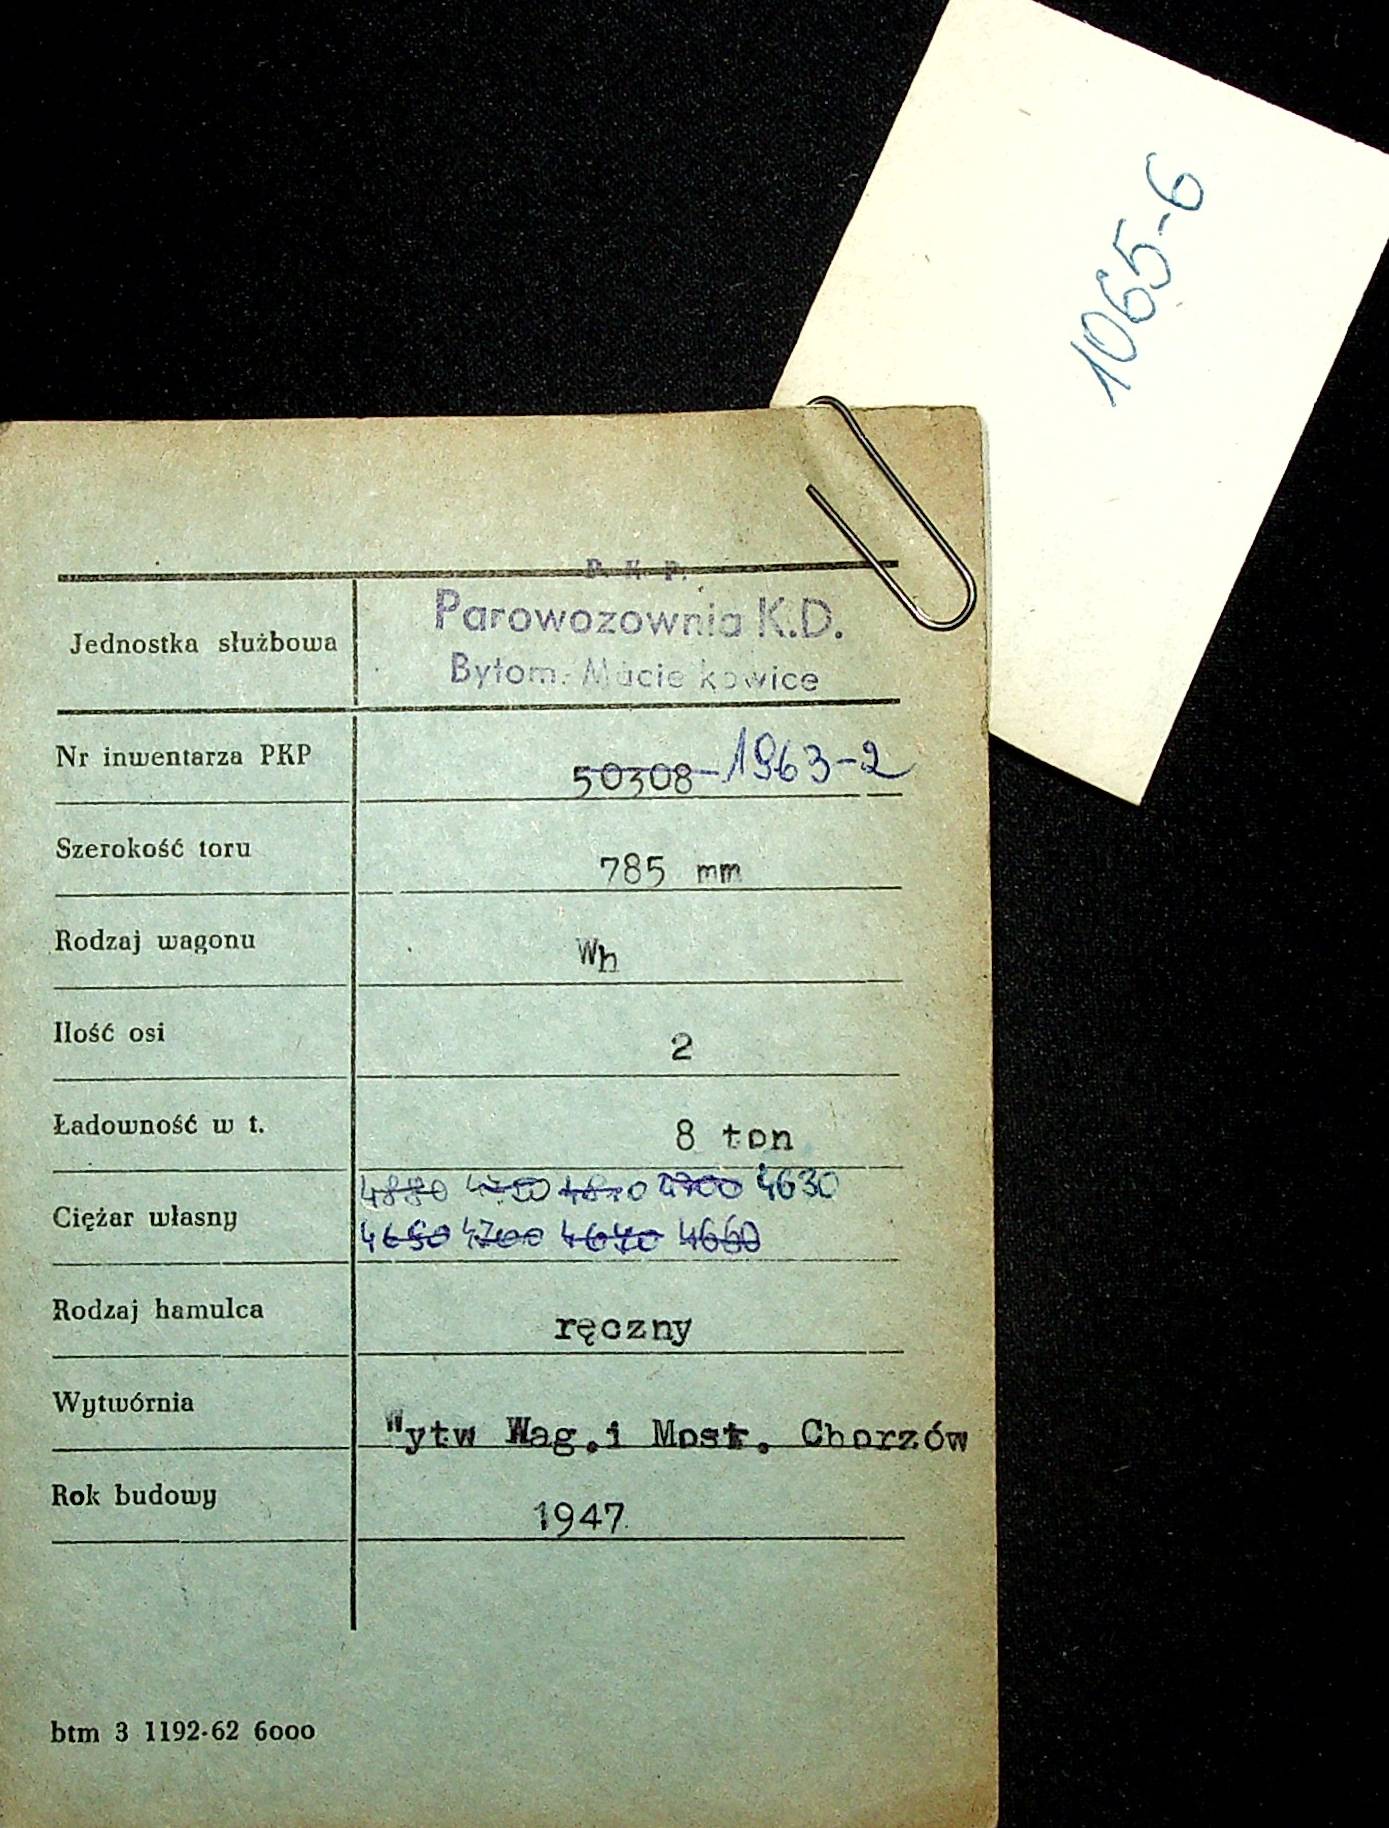 1065-6
P. K. P.
Parowozownia K.D.
Jednostka służbowa
Bytom.
Nr inwentarza PKP 50308 1963-2
Szerokość toru 785 mm
Rodzaj wagonu Wh
Ilość osi 2
Ładowność w t. 8 ton
4880 4630
Ciężar własny
4700 4640 4660
Rodzaj hamulca ręczny
Wytwórnia Wytw Wag.i Most. Chorzów
Rok budowy 1947
btm 3 1192-62 6000